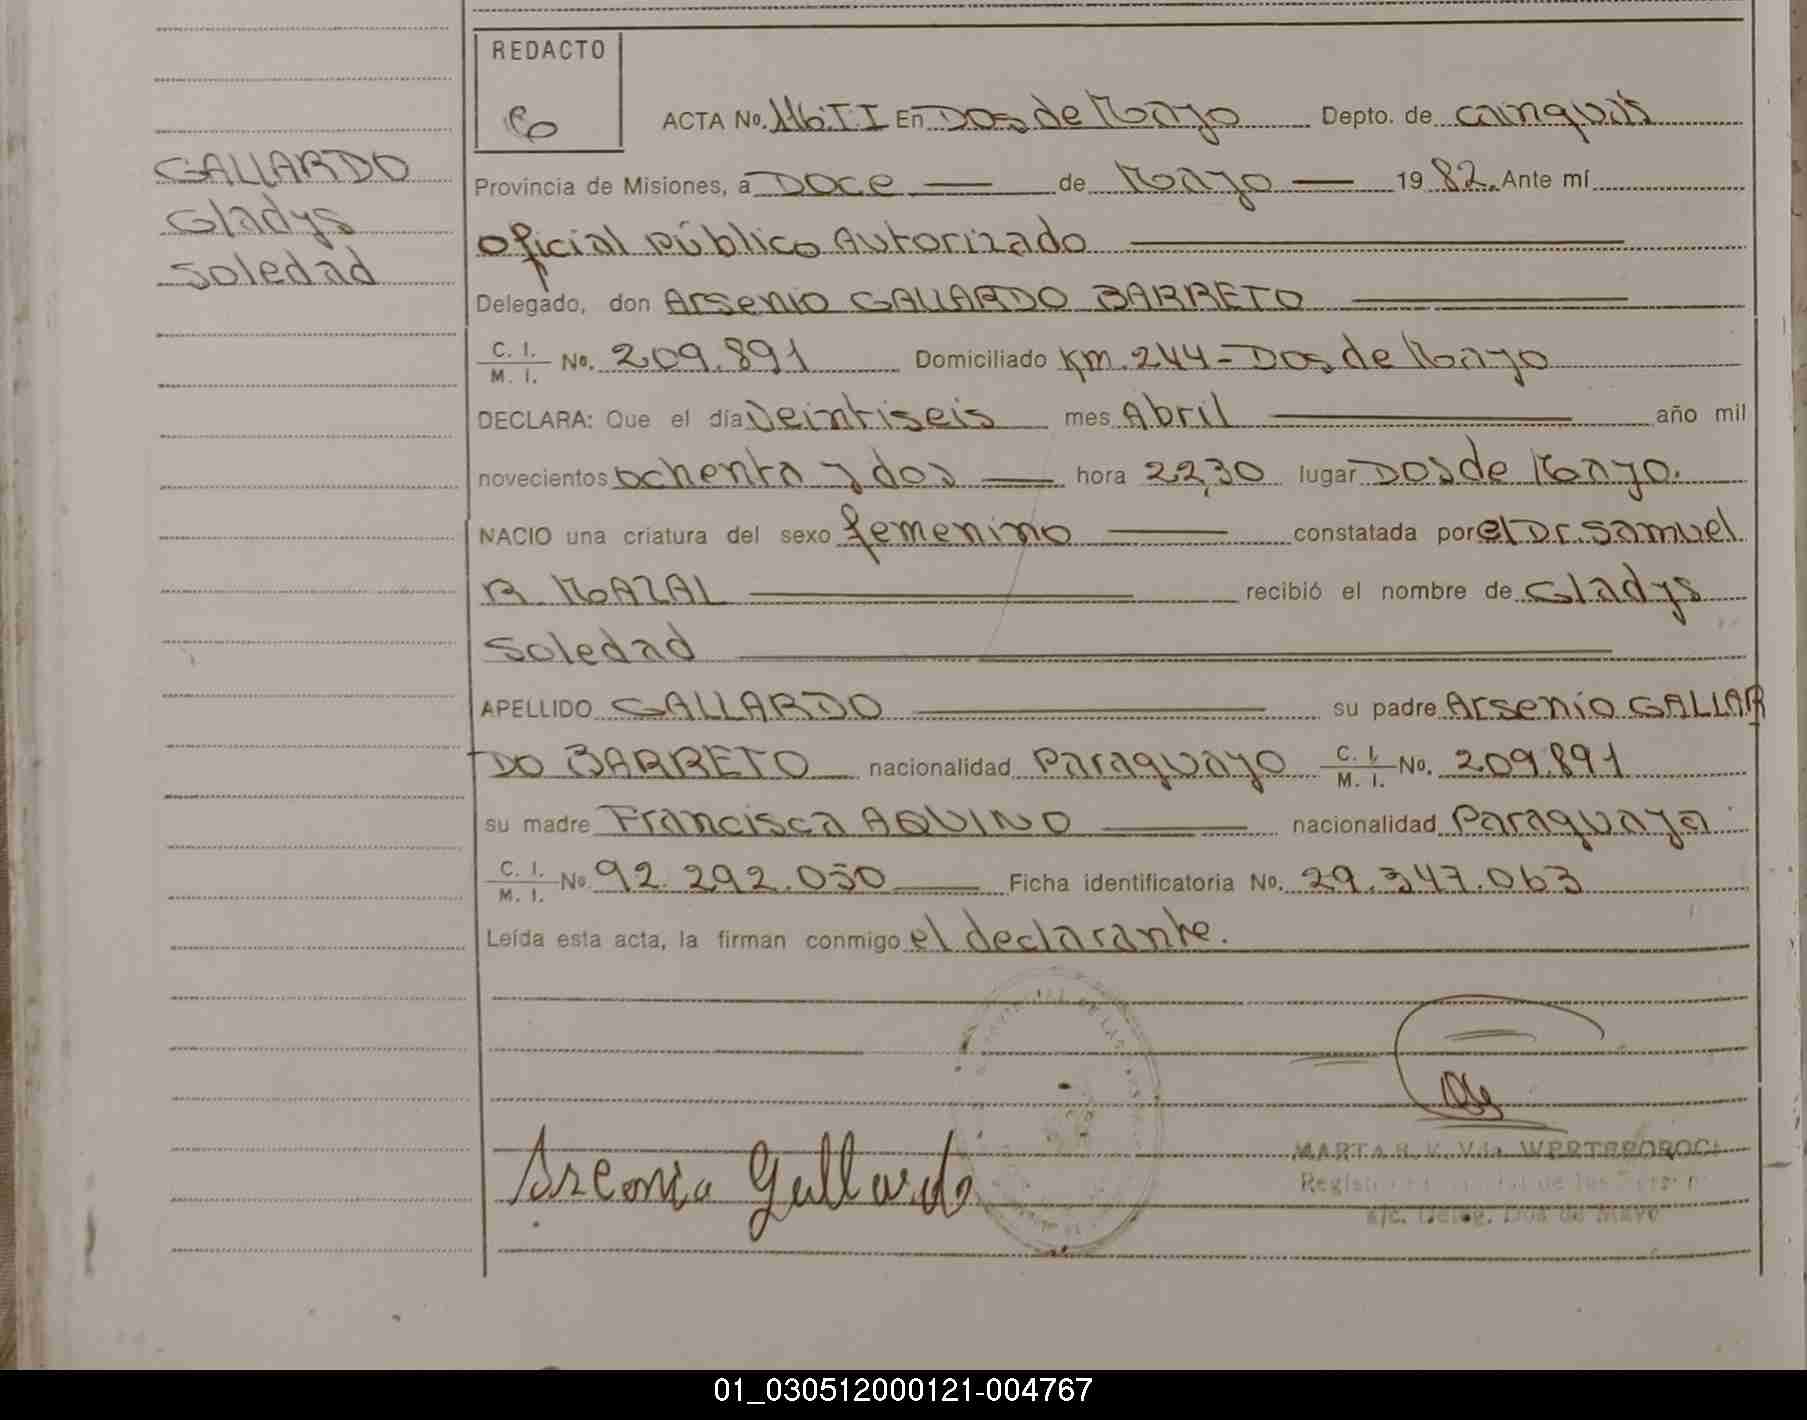 REDACTO
ACTA No. 116.T.I En Dos de Mayo Depto. de cainguás
GALLARDO
Gladys
Soledad
Provincia de Misiones, a Doce de Mayo 19 82. Ante mí
oficial público Autorizado
Delegado, don Arsenio GALLARDO BARRETO
C. I. / M. I. No. 209.891 Domiciliado Km. 244 - Dos de Mayo
DECLARA: Que el día Veintiseis mes Abril año mil
novecientos ochenta y dos hora 22,30 lugar Dos de Mayo.
NACIO una criatura del sexo femenino constatada por el Dr. Samuel
R MAZAL recibió el nombre de Gladys
Soledad
APELLIDO GALLARDO su padre Arsenio GALLAR
DO BARRETO nacionalidad Paraguayo C. I. / M. I. No. 209.891
su madre Francisca AQUINO nacionalidad Paraguaya
C. I. / M. I. No 92.292.050 Ficha identificatoria No. 29.347.063
Leída esta acta, la firman conmigo el declarante.
Arsenio Gallardo
MARTA R. V. Vda.
a/c. Deleg. Dos de Mayo
01_030512000121-004767